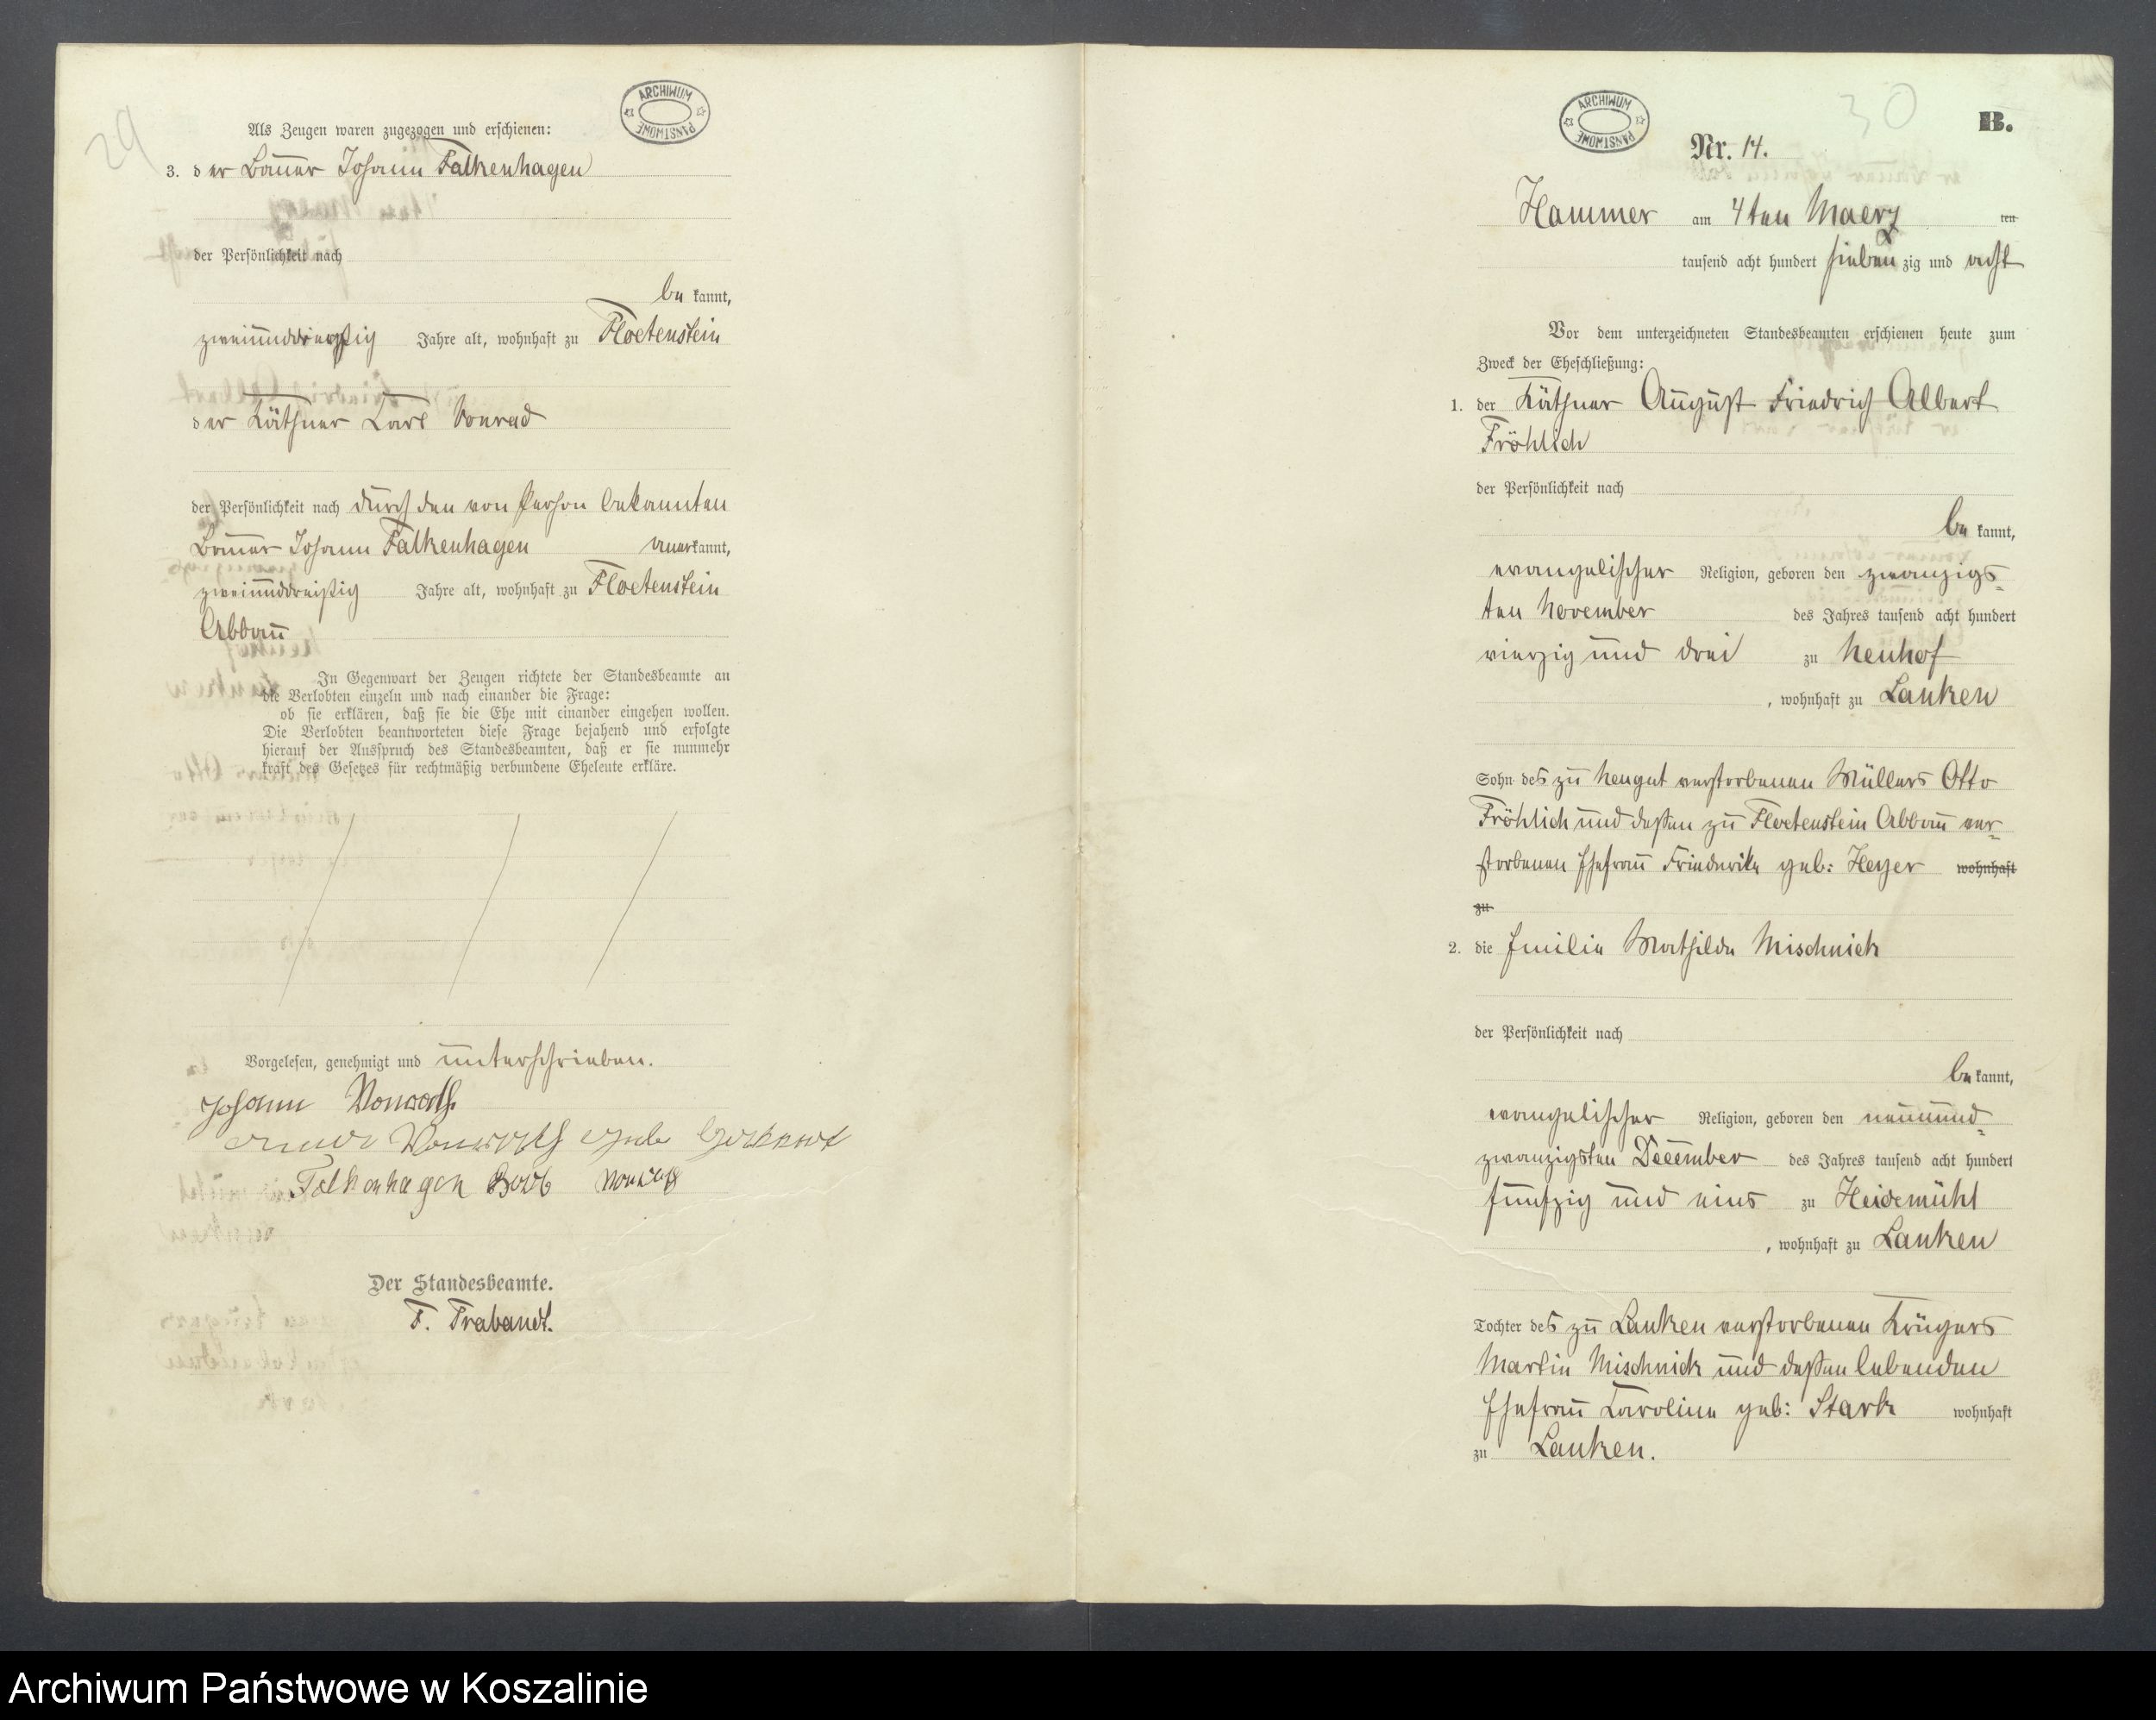 29
ARCHIWUM PAŃSTWOWE
Als Zeugen waren zugezogen und erschienen:
3. der Bauer Johann Falkenhagen
der Persönlichkeit nach
be kannt,
zweiunddreißig Jahre alt, wohnhaft zu Floetenstein
der Käthner Carl Conrad
der Persönlichkeit nach durch den von Person bekannten
Bauer Johann Falkenhagen anerkannt,
zweiunddreißig Jahre alt, wohnhaft zu Floetenstein
Abbau
In Gegenwart der Zeugen richtete der Standesbeamte an
die Verlobten einzeln und nach einander die Frage:
ob sie erklären, daß sie die Ehe mit einander eingehen wollen.
Die Verlobten beantworteten diese Frage bejahend und erfolgte
hierauf der Ausspruch des Standesbeamten, daß er sie nunmehr
kraft des Gesetzes für rechtmäßig verbundene Eheleute erkläre.
Vorgelesen, genehmigt und unterschrieben.
Johann
Falkenhagen
Der Standesbeamte.
F. Trabandt.
ARCHIWUM PAŃSTWOWE
30
B.
Nr. 14.
Hammer am 4ten Maerz ten
tausend acht hundert sieben zig und acht
Vor dem unterzeichneten Standesbeamten erschienen heute zum
Zweck der Eheschließung:
1. der Käthner August Friedrich Albert
Fröhlich
der Persönlichkeit nach
be kannt,
evangelischer Religion, geboren den zwanzigs-
ten November des Jahres tausend acht hundert
vierzig und drei zu Neuhof
, wohnhaft zu Lanken
Sohn des zu Neugut verstorbenen Müllers Otto
Fröhlich und deßen zu Floetenstein Abbau ver-
storbenen Ehefrau Friederike geb: Heyer wohnhaft
zu
2. die Emilie Mathilde Mischnick
der Persönlichkeit nach
be kannt,
evangelischer Religion, geboren den neunund-
zwanzigsten December des Jahres tausend acht hundert
fünfzig und eins zu Heidemühl
, wohnhaft zu Lanken
Tochter des zu Lanken verstorbenen Krügers
Martin Mischnick und deßen lebenden
Ehefrau Caroline geb: Stark wohnhaft
zu Lanken.
Archiwum Państwowe w Koszalinie